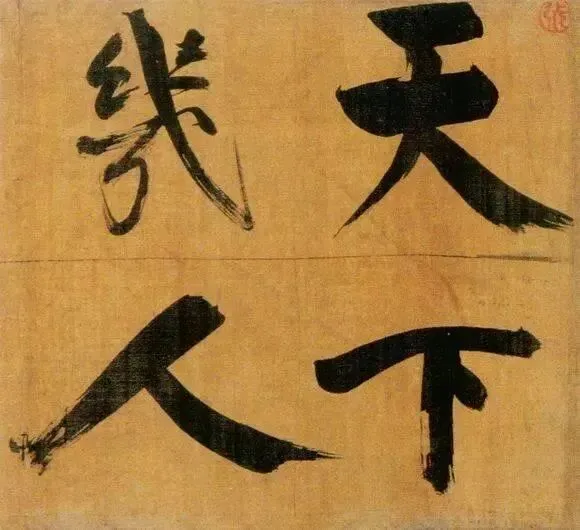 天下
幾人